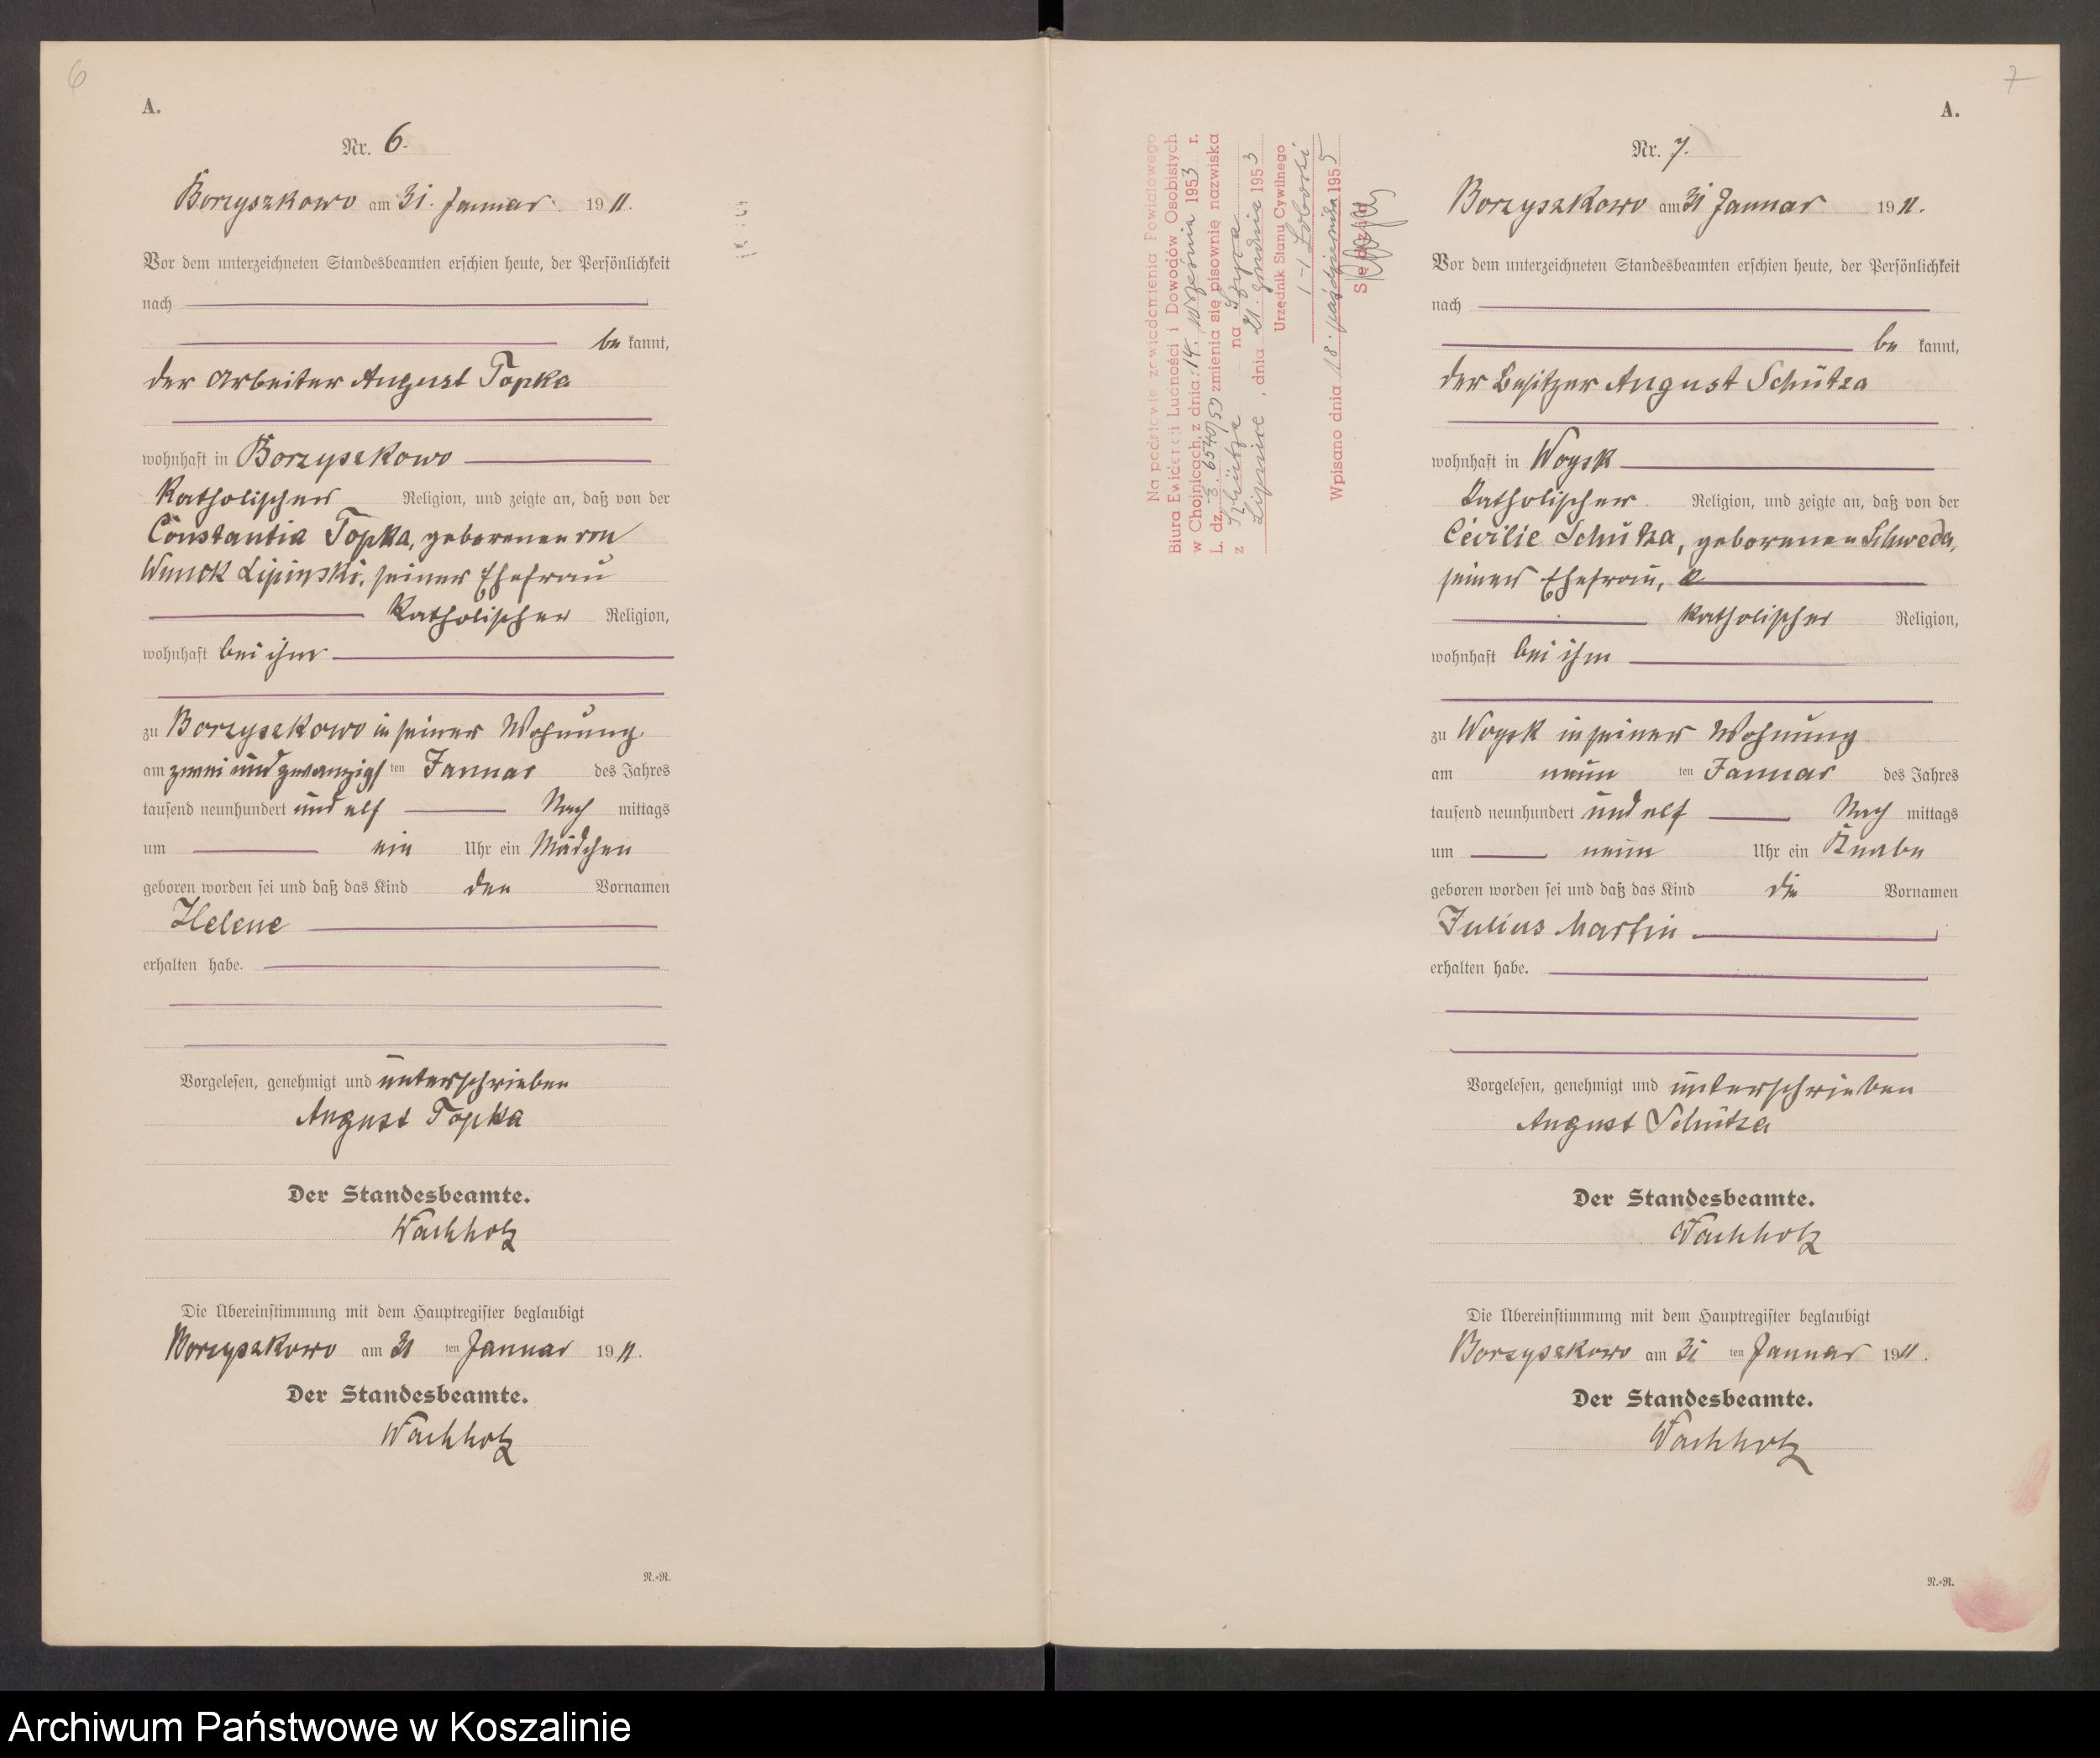 6
A.
Nr. 6.
Borzyszkowo am 31. Januar 1911.
Vor dem unterzeichneten Standesbeamten erschien heute, der Persönlichkeit
nach
be kannt,
der Arbeiter August Topka
wohnhaft in Borzyszkowo
katholischer Religion, und zeigte an, daß von der
Constantia Topka, geborenen von
Wnuck Lipinski, seiner Ehefrau
katholischer Religion,
wohnhaft bei ihm
zu Borzyszkowo in seiner Wohnung
am zwei und zwanzigs ten Januar des Jahres
tausend neunhundert und elf Nach mittags
um ein Uhr ein Mädchen
geboren worden sei und daß das Kind den Vornamen
Helene
erhalten habe.
Vorgelesen, genehmigt und unterschrieben
August Topka
Der Standesbeamte.
Wachholz
Die Übereinstimmung mit dem Hauptregister beglaubigt
Borzyszkowo am 31 ten Januar 1911.
Der Standesbeamte.
Wachholz
N.=R.
7
A.
Na podstawie zawiadomienia Powiatowego
Biura Ewidencji Ludności i Dowodów Osobistych
w Chojnicach, z dnia 14. września 1953 r.
L. dz. 6540/53 zmienia się pisownię nazwiska
z Schütza na Szyca
Lipnica, dnia 21. grudnia 1953
Urzędnik Stanu Cywilnego
Wpisano dnia 18. października 1955
Nr. 7.
Borzyszkowo am 31 Januar 1911.
Vor dem unterzeichneten Standesbeamten erschien heute, der Persönlichkeit
nach
be kannt,
der Besitzer August Schütza
wohnhaft in Woysk
katholischer Religion, und zeigte an, daß von der
Cecilie Schütza, geborenen Schweda,
seiner Ehefrau,
katholischer Religion,
wohnhaft bei ihm
zu Woysk in seiner Wohnung
am neun ten Januar des Jahres
tausend neunhundert und elf Nach mittags
um neun Uhr ein Knabe
geboren worden sei und daß das Kind die Vornamen
Julius Martin
erhalten habe.
Vorgelesen, genehmigt und unterschrieben
August Schütza
Der Standesbeamte.
Wachholz
Die Übereinstimmung mit dem Hauptregister beglaubigt
Borzyszkowo am 31 ten Januar 1911.
Der Standesbeamte.
Wachholz
N.=R.
Archiwum Państwowe w Koszalinie